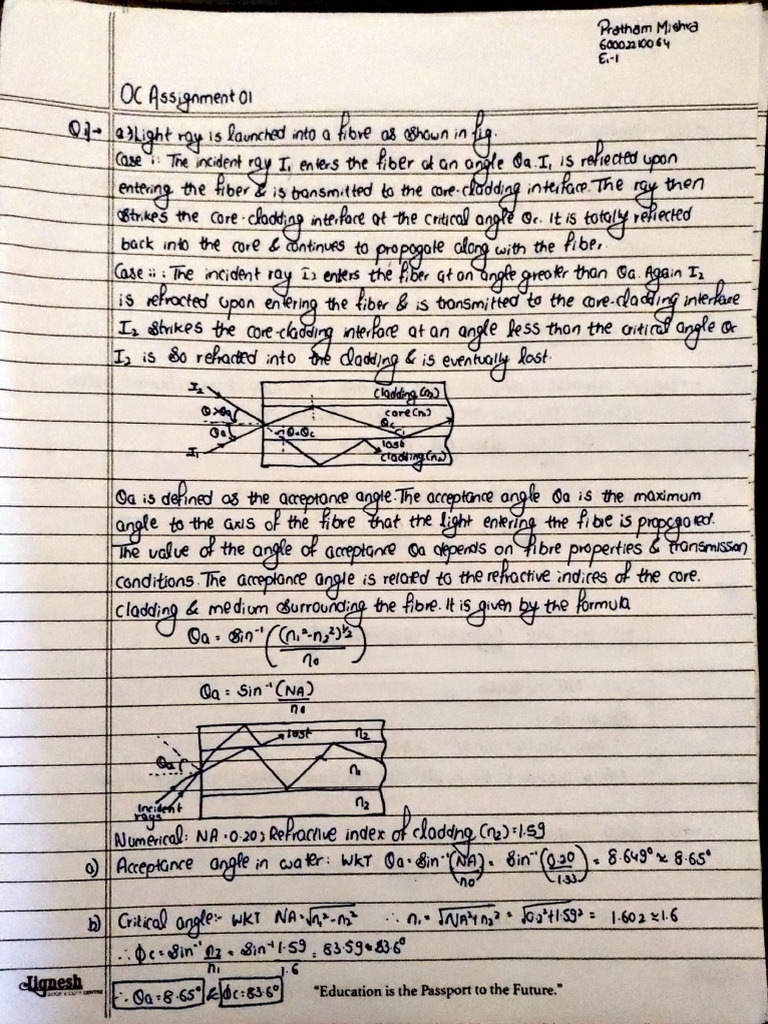 Pratham Mishra
60002210064
E1-1
OC Assignment 01
Q.1→ a) Light ray is launched into a fibre as shown in fig.
Case i: The incident ray I1 enters the fiber at an angle θa. I1 is reflected upon
entering the fiber & is transmitted to the core-cladding interface. The ray then
strikes the core-cladding interface at the critical angle θc. It is totally reflected
back into the core & continues to propogate along with the fiber.
Case ii: The incident ray I2 enters the fiber at an angle greater than θa. Again I2
is refracted upon entering the fiber & is transmitted to the core-cladding interface
I2 strikes the core-cladding interface at an angle less than the critical angle θc
I2 is so refracted into the cladding & is eventually lost.
I2
cladding (n2)
θ>θa
core (n1)
θc
θa
θ=θc
lost
I1
cladding (n2)
θa is defined as the acceptance angle. The acceptance angle θa is the maximum
angle to the axis of the fibre that the light entering the fibre is propogated.
The value of the angle of acceptance θa depends on fibre properties & transmission
conditions. The acceptance angle is related to the refractive indices of the core.
cladding & medium surrounding the fibre. It is given by the formula
θa = sin⁻¹ ((n1²-n2²)^1/2 / n0)
θa = sin⁻¹ (NA) / n0
lost
n2
θa
n1
Incident
rays
n2
Numerical: NA = 0.20; Refractive index of cladding (n2) = 1.59
a) Acceptance angle in water: WKT θa = sin⁻¹ (NA / n0) = sin⁻¹ (0.20 / 1.33) = 8.649° ≈ 8.65°
b) Critical angle:- WKT NA = √n1²-n2² ∴ n1 = √NA²+n2² = √0.2²+1.59² = 1.602 ≈ 1.6
∴ ϕc = sin⁻¹ n2 / n1 = sin⁻¹ 1.59 / 1.6 = 83.59 ≈ 83.6°
∴ θa = 8.65° & ϕc = 83.6°
Jignesh
"Education is the Passport to the Future."